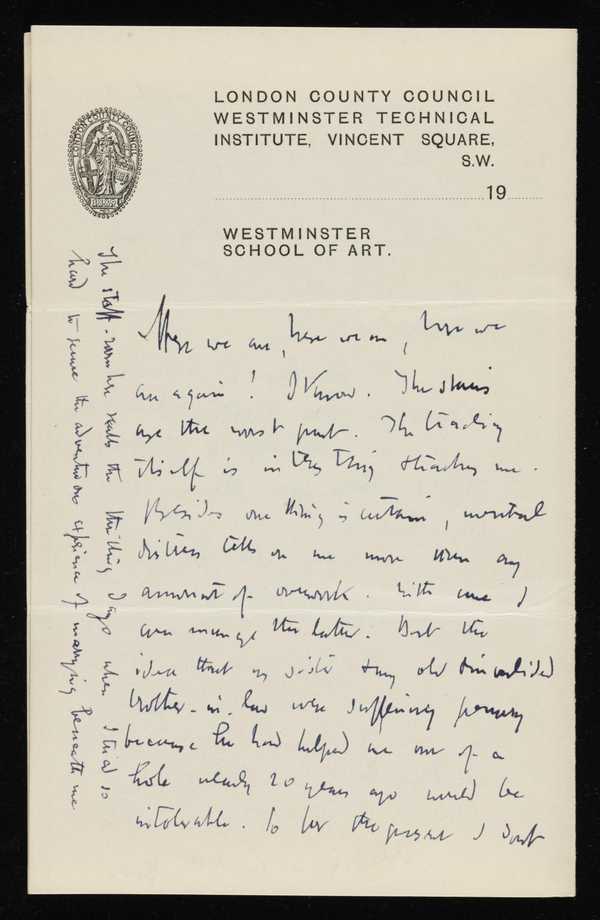 LONDON COUNTY COUNCIL
WESTMINSTER TECHNICAL
INSTITUTE, VINCENT SQUARE,
S.W.
19
WESTMINSTER
SCHOOL OF ART.
LONDON COUNTY COUNCIL
Here we are, here we are, here we
are again! I know. The stairs
are the worst part. The teaching
itself is interesting & teaches me.
Besides one thing is certain, mental
distress tells on me more than any
amount of overwork. With care I
can manage the latter. But the
idea that my sister & my old
brother-in-law were suffering penury
because he had helped me out of a
hole nearly 20 years ago would be
intolerable. So for the present I don't
The staff-room here recalls the thrilling days when I tried so
hard to secure the adventurous experience of marrying beneath me